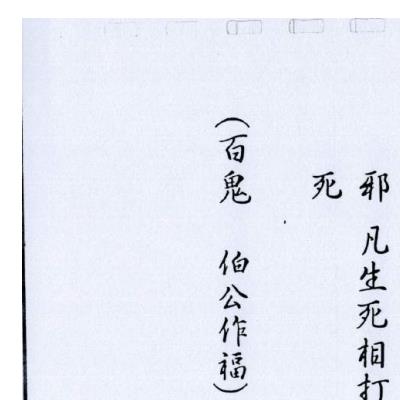 邪 凡生死相打
死
（百鬼 伯公作福）